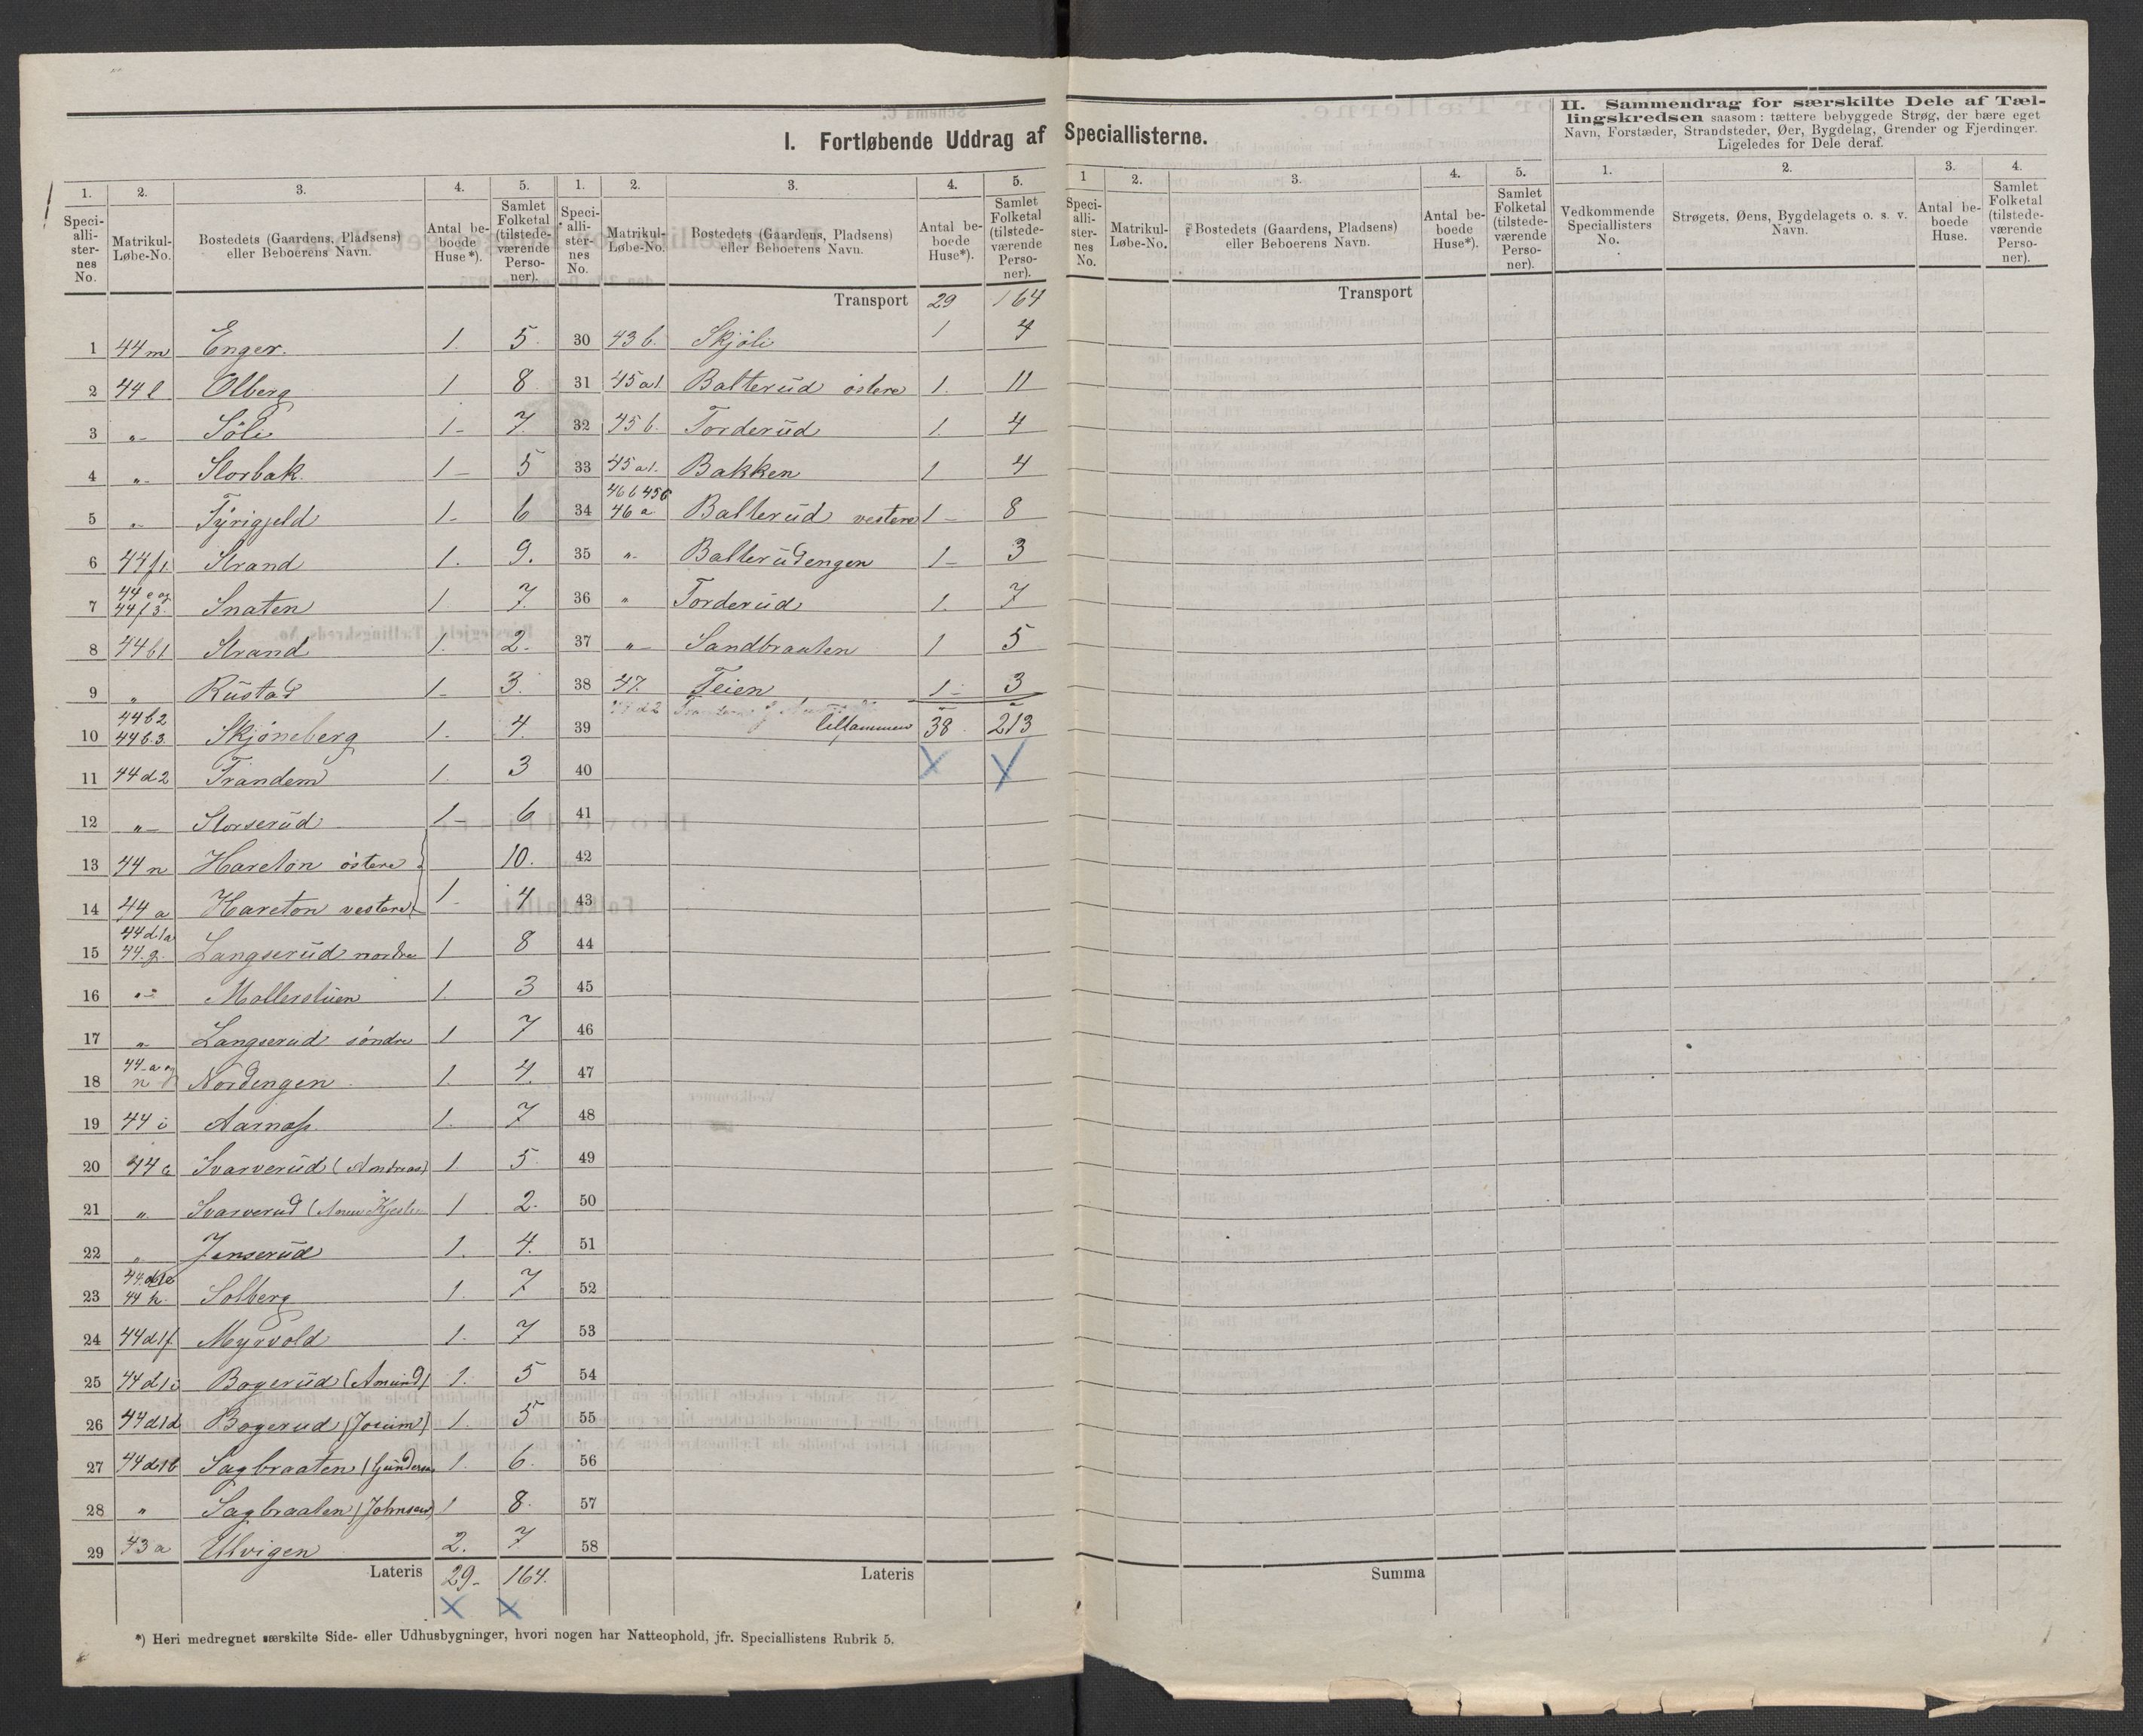 I. Fortløbende Uddrag af Speciallisterne.
II. Sammendrag for særskilte Dele af Tællingskredsen saasom: tættere bebyggede Strøg, der bære eget
Navn, Forstæder, Strandsteder, Øer, Bygdelag, Grender og Fjerdinger.
Ligeledes for Dele deraf.
1. 2. 3. 4. 5. 1. 2. 3. 4. 5. 1 2. 3. 4. 5. 1. 2. 3. 4.
Speciallisternes No. Matrikul-Løbe-No. Bostedets (Gaardens, Pladsens) eller Beboerens Navn. Antal beboede Huse*). Samlet Folketal (tilstedeværende Personer).
Speciallisternes No. Matrikul-Løbe-No. Bostedets (Gaardens, Pladsens) eller Beboerens Navn. Antal beboede Huse*). Samlet Folketal (tilstedeværende Personer).
Speciallisternes No. Matrikul-Løbe-No. Bostedets (Gaardens, Pladsens) eller Beboerens Navn. Antal beboede Huse*). Samlet Folketal (tilstedeværende Personer).
Vedkommende Speciallisters No. Strøgets, Øens, Bygdelagets o. s. v. Navn. Antal beboede Huse. Samlet Folketal (tilstedeværende Personer).
1 44 m Enger. 1. 5.
2 44 l Olberg 1 8
3 „ Söli 1- 7.
4 „ Storbak 1- 5
5 „ Tyrigjeld 1- 6
6 44 f 1 Strand 1. 9.
7 44 e og 44 f 3. Snaten 1 7.
8 44 b 1 Strand 1. 2.
9 „ Rustad 1- 3.
10 44 b 2 44 b. 3. Skjöneberg 1. 4.
11 44 d 2 Frandem 1. 3
12 „ Storserud 1- 6
13 44 n Hareton östere 10.
14 44 a Hareton vestere 1- 4
15 44 d 1 a 44. g. Langserud nordre 1 8
16 „ Mollerstuen 1. 3
17 „ Langserud söndre 1 7
18 44 a og n Nordengen 1. 4.
19 44 i Aarnæs 1. 7
20 44 c Svarverud (Andreas) 1 5
21 „ Svarverud 1 2.
22 „ Jenserud 1. 4.
23 44 h. Solberg 1. 7
24 44 d 1 f Myrvold 1. 7
25 44 d 1 i Bogerud (Amund) 1. 5
26 44 d 1 d Bogerud (Jocum) 1. 5
27 44 d 1 b Sagbraaten (Gundersen 1. 6.
28 „ Sagbraaten (Johnsen) 1 8.
29 43 a Ulvigen 2. 7.
Lateris 29- 164.
Transport 29 164
30 43 b. Skjöli 1 4
31 45 a 1. Balterud östere 1. 11
32 45 b. Torderud 1. 4
33 45 a 1. Bakken 1 4
34 46 b 45 c 46 a Balterud vestere 1- 8
35 „ Balterudengen 1- 3
36 „ Torderud 1. 7
37 „ Sandbraaten 1 5
38 47. Teien 1- 3
39 tilsammen 38 213
40
41
42
43
44
45
46
47
48
49
50
51
52
53
54
55
56
57
58
Lateris
Transport
Summa
*) Heri medregnet særskilte Side- eller Udhusbygninger, hvori nogen har Natteophold, jfr. Speciallistens Rubrik 5.